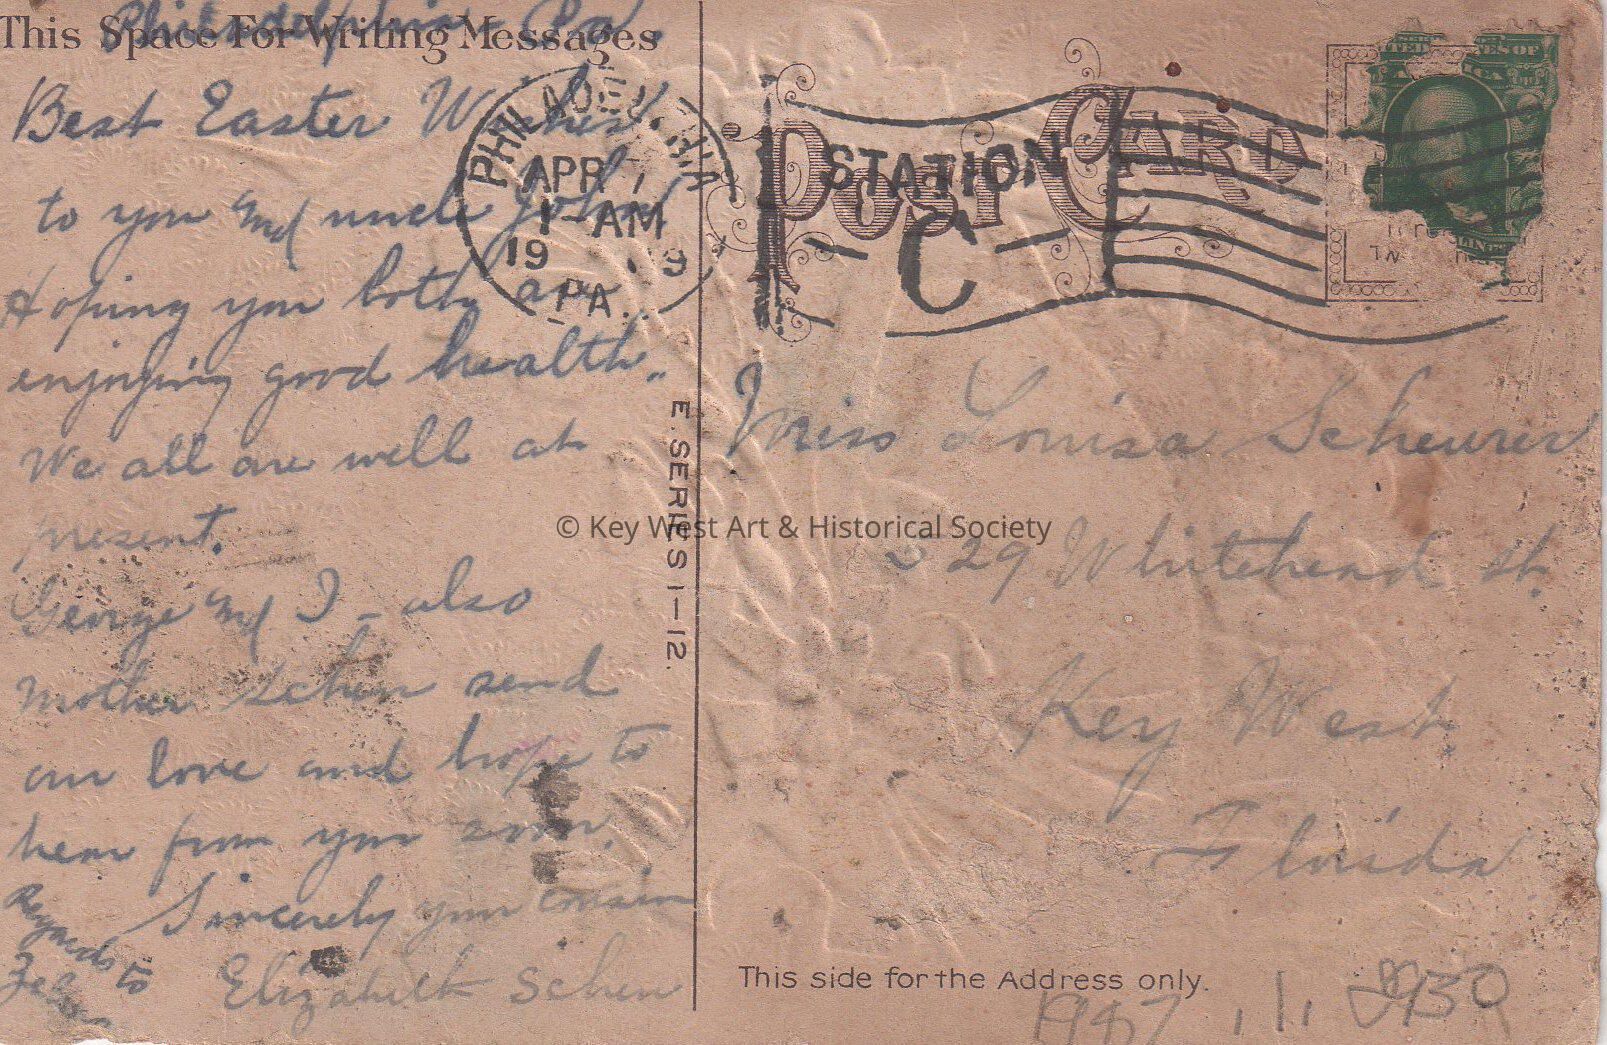 Philadelphia Pa.
This Space For Writing Messages
Best Easter Wishes
to you and uncle John
Hoping you both are
enjoying good health.
We all are well at
present.
George and I - also
Mother Scheu send
our love and hope to
hear from you soon.
Sincerely your cousin
Elizabeth Scheu
Regards to
PHILADELPHIA
APR 7
1-AM
19
PA.
STATION
C
POST CARD
E. SERIES 1-12.
Miss Louisa Scheurer
529 Whitehead St.
Key West
Florida
This side for the Address only.
1987
© Key West Art & Historical Society